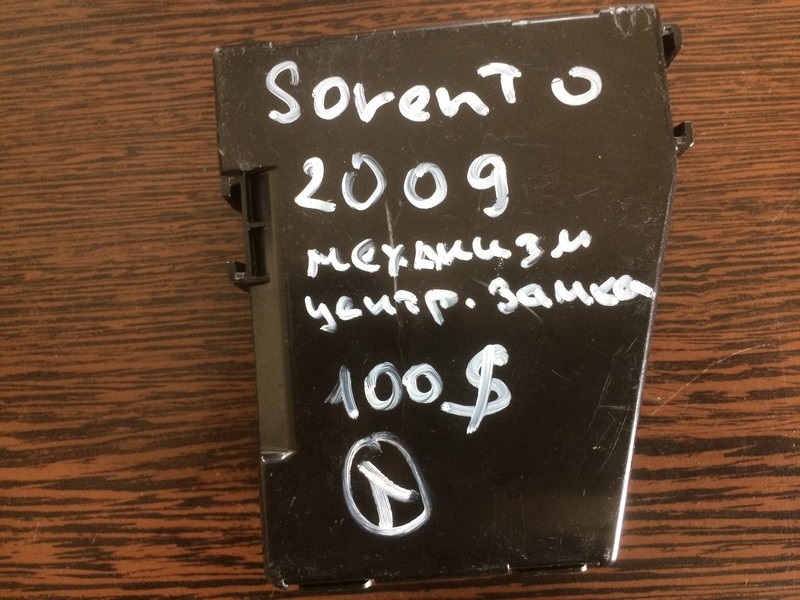 Sorento
2009
механизм
центр. замка
100$